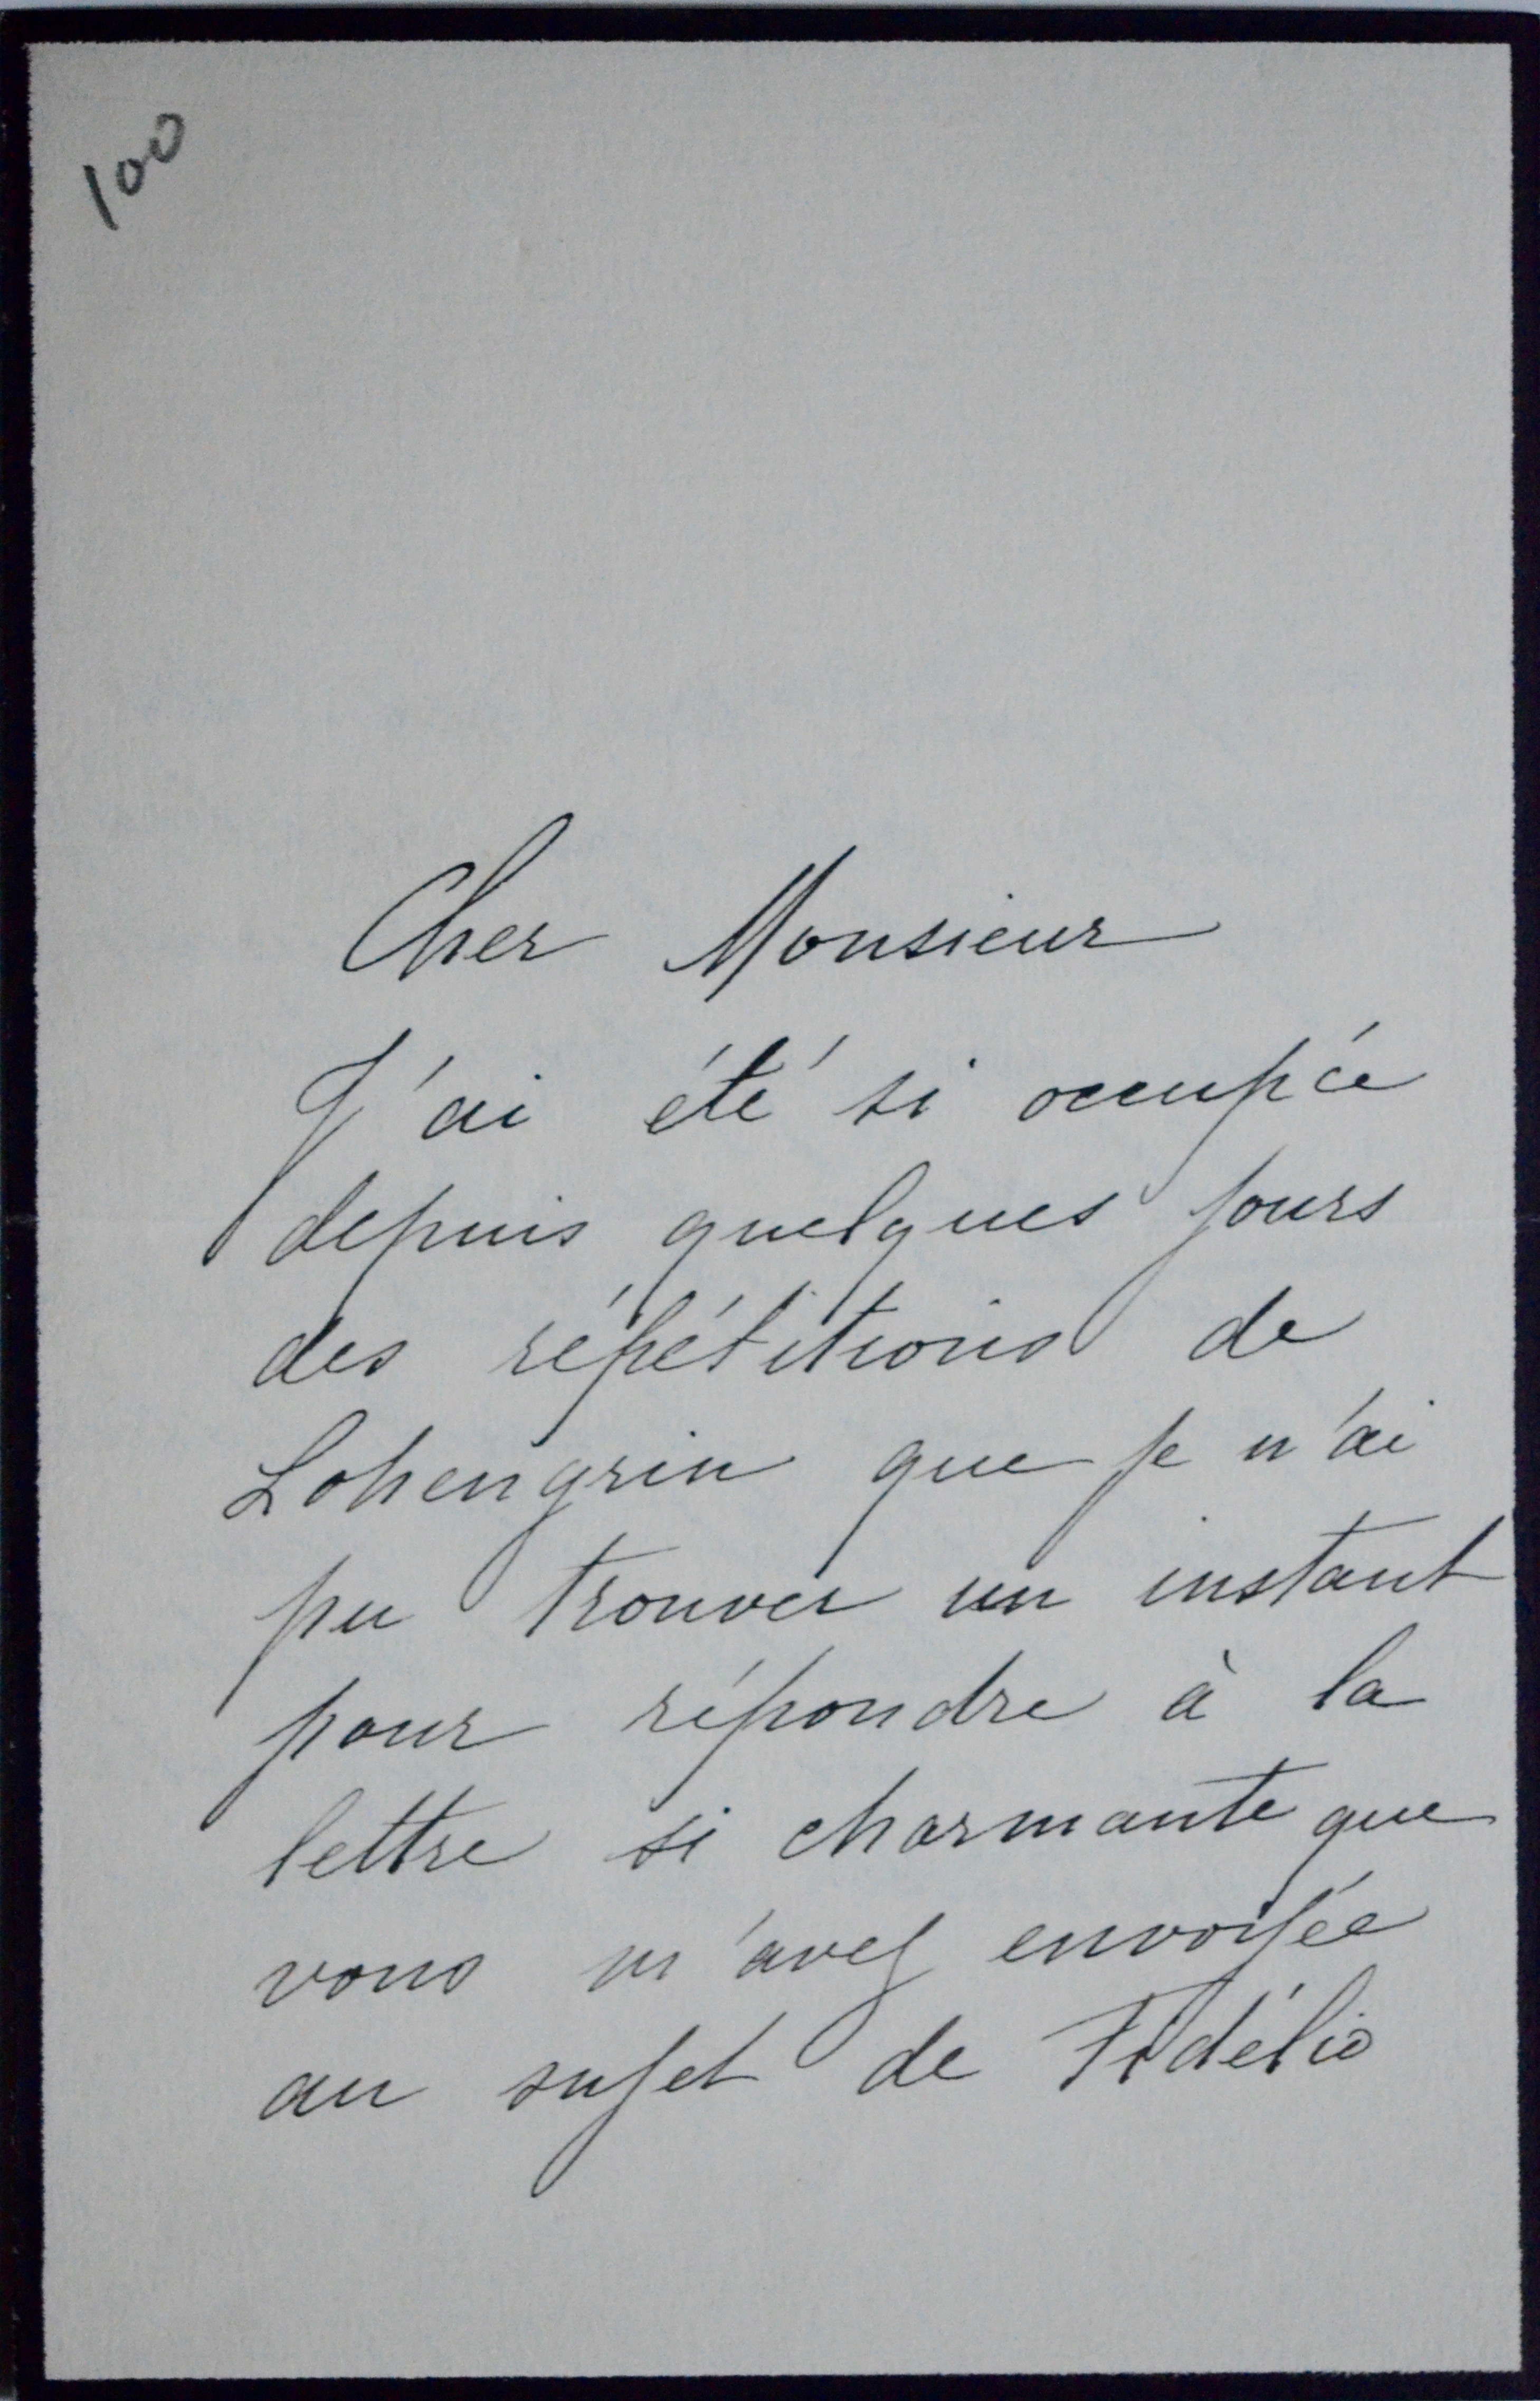 100
Cher Monsieur
J'ai été si occupée
depuis quelques jours
des répétitions de
Lohengrin que je n'ai
pu trouver un instant
pour répondre à la
lettre si charmante que
vous m'avez envoyée
au sujet de Fidélio